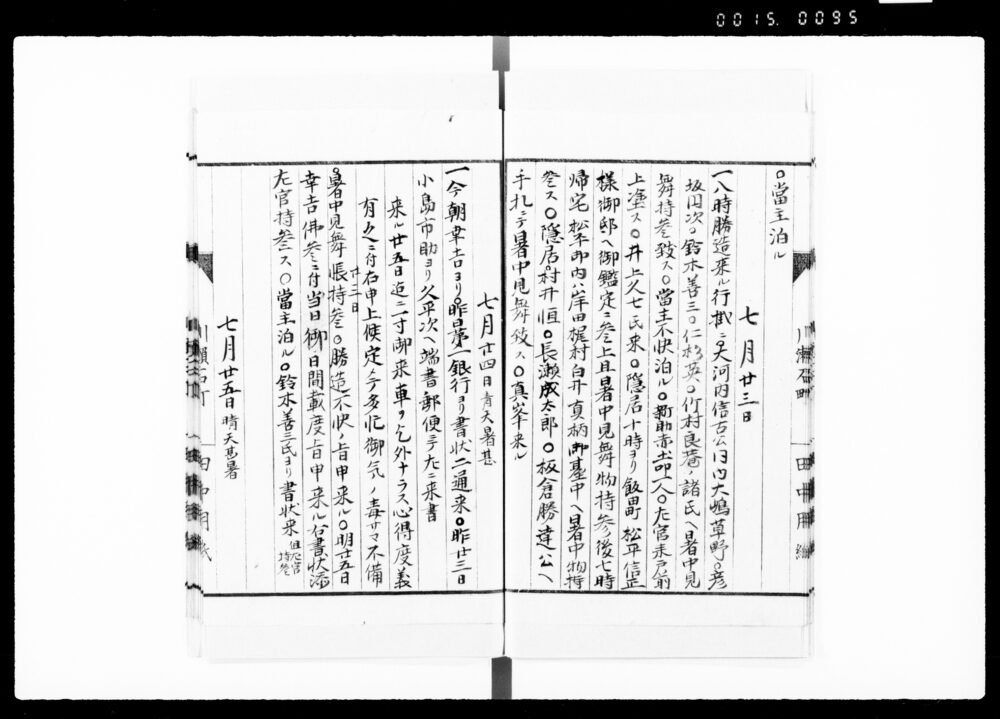 0015. 0095
○當主泊ル
七月廿三日
一八時勝造来ル行掛ニ大河内信古公門内大嶋草野○彦
坂園次○鈴木善三○仁杉英○竹村良菴ノ諸氏ヘ暑中見
舞持参致ス○當主不快泊ル○新助赤土画一人○左官来戸前
上塗ス○井上久七氏来○隠居十時ヨリ飯田町松平信正
様御邸ヘ御鑑定ニ参上且暑中見舞物持参後七時
帰宅松平邸内ハ岸田梶村白井真柄御臺中ヘ暑中物持
参ス○隠居村井恒○長瀬成太郎○板倉勝達公ヘ
手札ニテ暑中見舞致ス○真峯来ル
七月廿四日 青天暑甚
一今朝幸吉ヨリ昨日第一銀行ヨリ書状二通来○昨廿三日
小島市助ヨリ久平次ヘ端書郵便ニテ左ニ来書
来ル廿五日迄ニ一寸御来車ヲ乞外ナラス心得度義
有之ニ付右申上候定メ今多忙御気ノ毒サマ不備
廿三日
○暑中見舞帳持参○勝造不快ノ旨申来ル○明廿五日
幸吉佛参ニ付当日御日間載度旨申来ル右書状添
左官持参ス○當主泊ル○鈴木善三氏ヨリ書状来 但左官持参
七月廿五日 晴天甚暑
川瀬石町
田中用紙